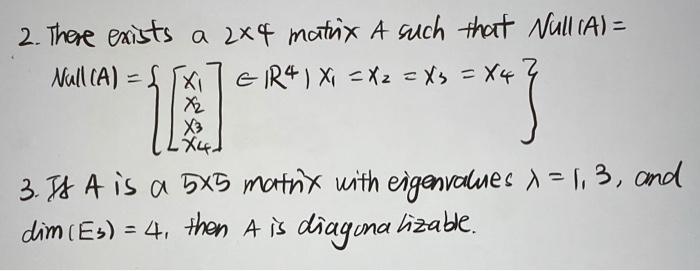 2. There exists a 2×4 matrix A such that Null(A) =
Null(A) = { [x1 x2 x3 x4] ∈ ℝ⁴ | x1 = x2 = x3 = x4 }
3. If A is a 5×5 matrix with eigenvalues λ = 1, 3, and
dim(E3) = 4, then A is diagonalizable.